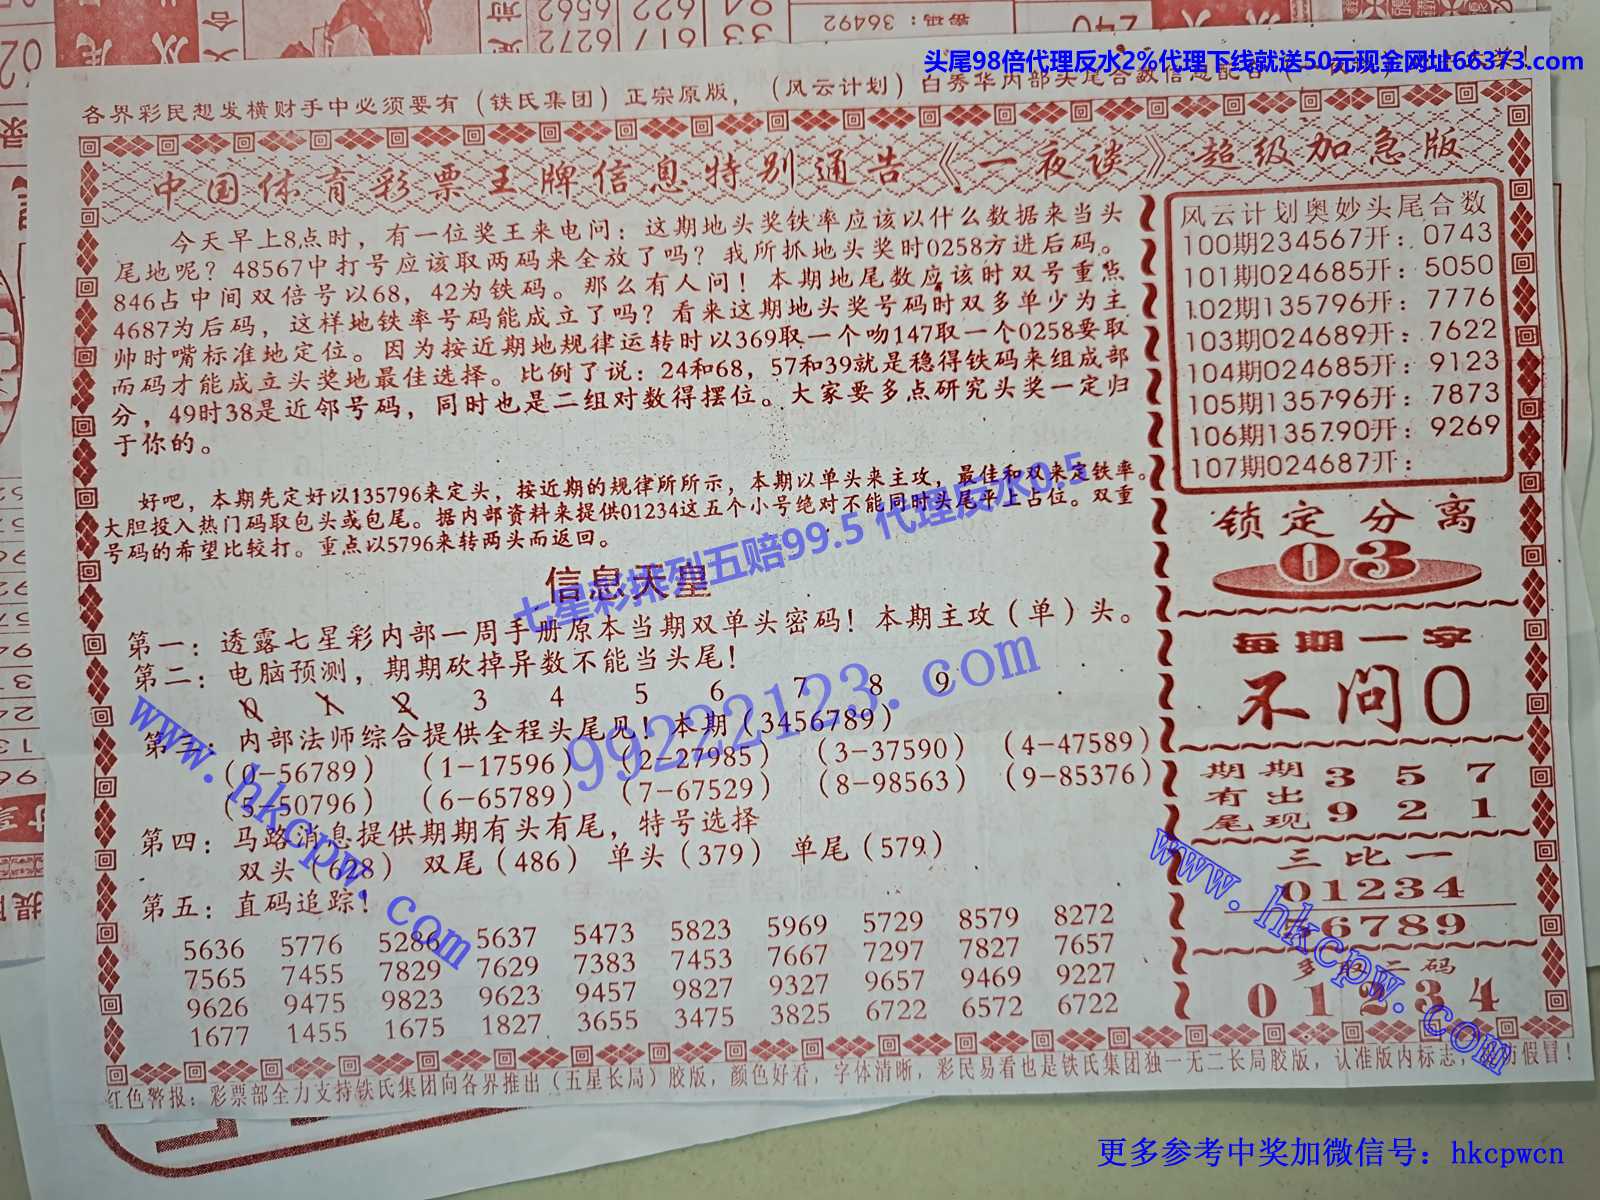 头尾98倍代理反水2%代理下线就送50元现金网址66373.com
各界彩民想发横财手中必须要有（铁氏集团）正宗原版，（风云计划）白秀华内部头尾合数信息配合
中国体育彩票王牌信息特别通告《一夜谈》超级加急版
今天早上8点时，有一位奖王来电问：这期地头奖铁率应该以什么数据来当头
尾地呢？48567中打号应该取两码来全放了吗？我所抓地头奖时0258方进后码。
846占中间双倍号以68，42为铁码。那么有人问！本期地尾数应该时双号重点
4687为后码，这样地铁率号码能成立了吗？看来这期地头奖号码时双多单少为主
帅时嘴标准地定位。因为按近期地规律运转时以369取一个吻147取一个0258要取
而码才能成立头奖地最佳选择。比例了说：24和68，57和39就是稳得铁码来组成部
分，49时38是近邻号码，同时也是二组对数得摆位。大家要多点研究头奖一定归
于你的。
好吧，本期先定好以135796来定头，按近期的规律所所示，本期以单头来主攻，最佳和双来定铁率。
大胆投入热门码取包头或包尾。据内部资料来提供01234这五个小号绝对不能同时头尾平上占位。双重
号码的希望比较打。重点以5796来转两头而返回。
七星彩排列五赔99.5 代理反水0.5
信息天皇
第一：透露七星彩内部一周手册原本当期双单头密码！本期主攻（单）头。
第二：电脑预测，期期砍掉异数不能当头尾！
0 1 2 3 4 5 6 7 8 9
第三：内部法师综合提供全程头尾见！本期（3456789）
（0-56789）（1-17596）（2-27985）（3-37590）（4-47589）
（5-50796）（6-65789）（7-67529）（8-98563）（9-85376）
第四：马路消息提供期期有头有尾，特号选择
双头（628） 双尾（486） 单头（379） 单尾（579）
第五：直码追踪！
5636 5776 5286 5637 5473 5823 5969 5729 8579 8272
7565 7455 7829 7629 7383 7453 7667 7297 7827 7657
9626 9475 9823 9623 9457 9827 9327 9657 9469 9227
1677 1455 1675 1827 3655 3475 3825 6722 6572 6722
99222123.com
www.hkcpw.com
风云计划奥妙头尾合数
100期234567开：0743
101期024685开：5050
102期135796开：7776
103期024689开：7622
104期024685开：9123
105期135796开：7873
106期135790开：9269
107期024687开：
锁定分离
03
每期一字
不问0
期期 3 5 7
有出
尾现 9 2 1
三比一
01234
56789
二码
0 1 2 3 4
www.hkcpw.com
红色警报：彩票部全力支持铁氏集团向各界推出（五星长局）胶版，颜色好看，字体清晰，彩民易看也是铁氏集团独一无二长局胶版，认准版内标志，谨防假冒！
更多参考中奖加微信号：hkcpwcn